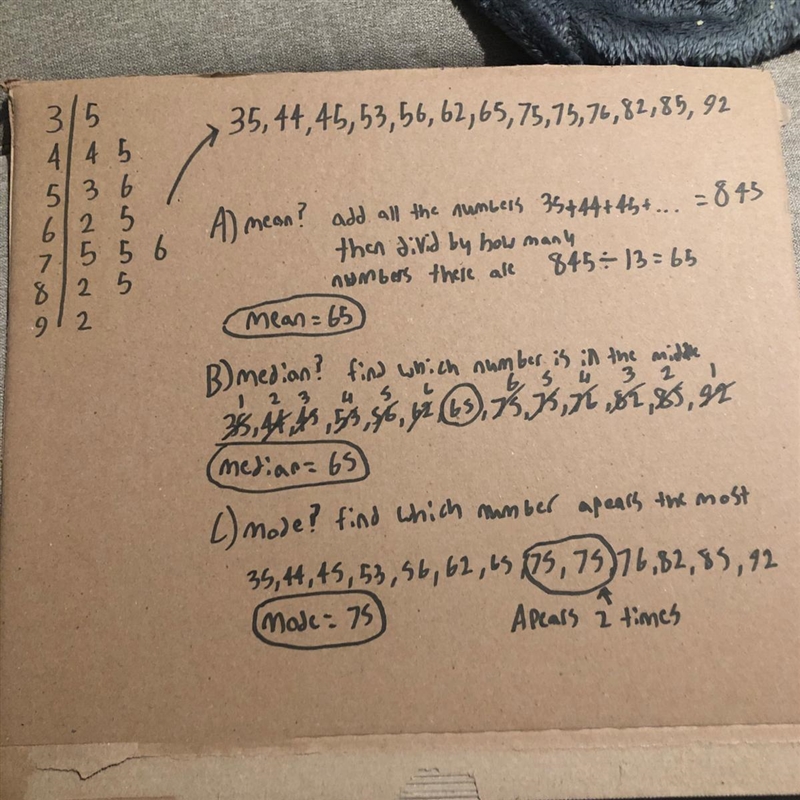 3 | 5
4 | 4 5
5 | 3 6
6 | 2 5
7 | 5 5 6
8 | 2 5
9 | 2
35, 44, 45, 53, 56, 62, 65, 75, 75, 76, 82, 85, 92
A) mean? add all the numbers 35+44+45+... = 845
then divid by how many
numbers there are 845 ÷ 13 = 65
mean = 65
B) median? find which number is in the middle
1 2 3 4 5 6 6 5 4 3 2 1
35, 44, 45, 53, 56, 62, 65, 75, 75, 76, 82, 85, 92
median = 65
C) mode? find which number apears the most
35, 44, 45, 53, 56, 62, 65, 75, 75, 76, 82, 85, 92
mode = 75
Apears 2 times